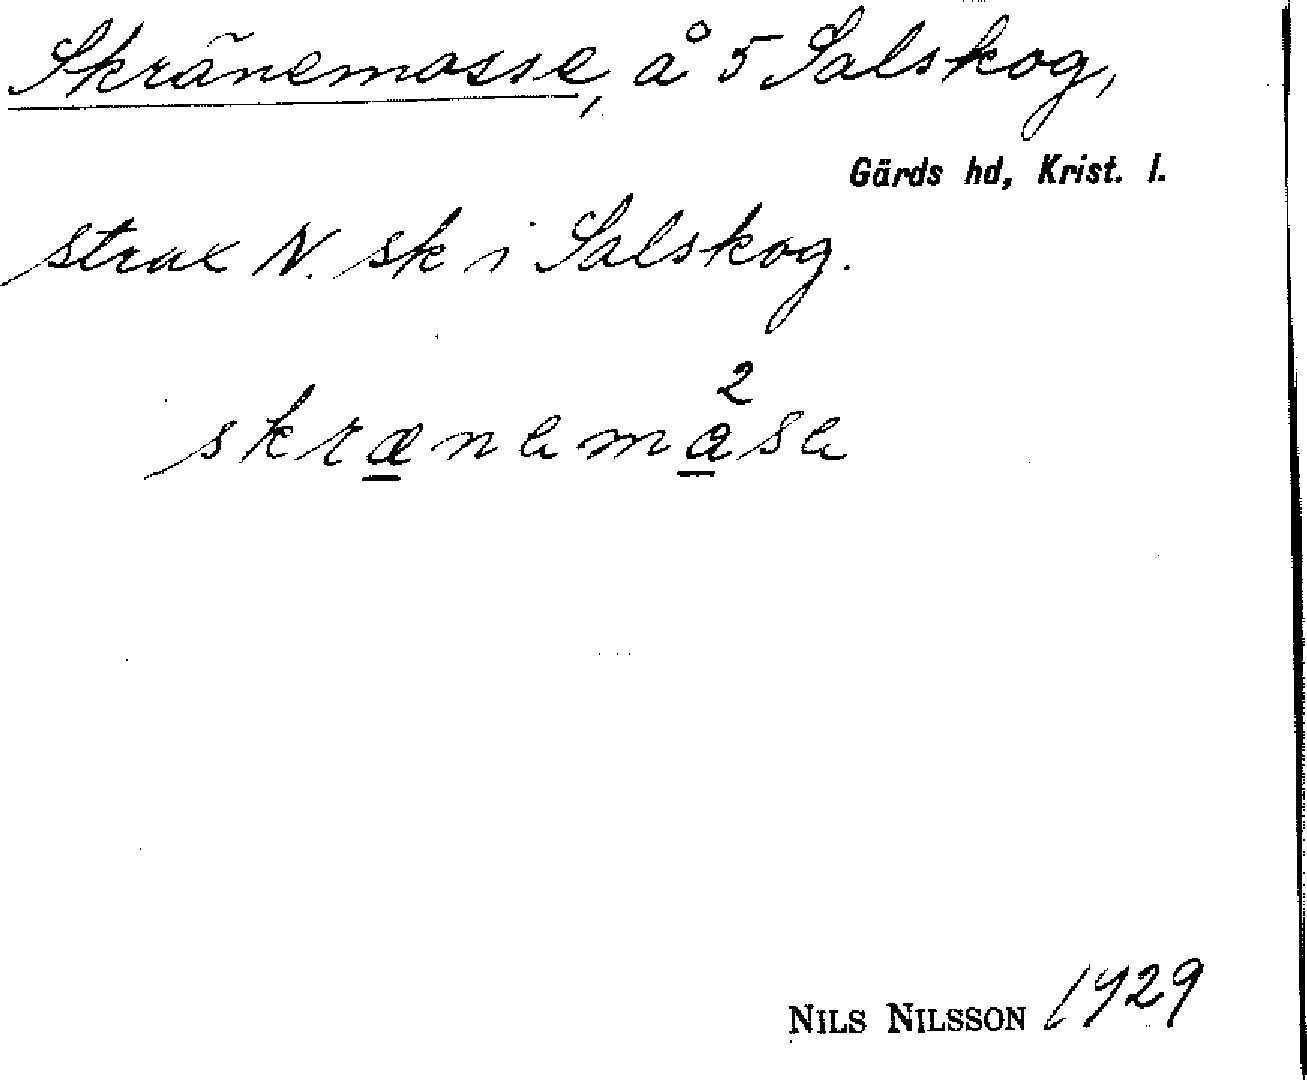 Skränemosse, å 5 Salskog,
Gärds hd, Krist. l.
strax N. sk i Salskog.
2
skrænemåse
NILS NILSSON 1929